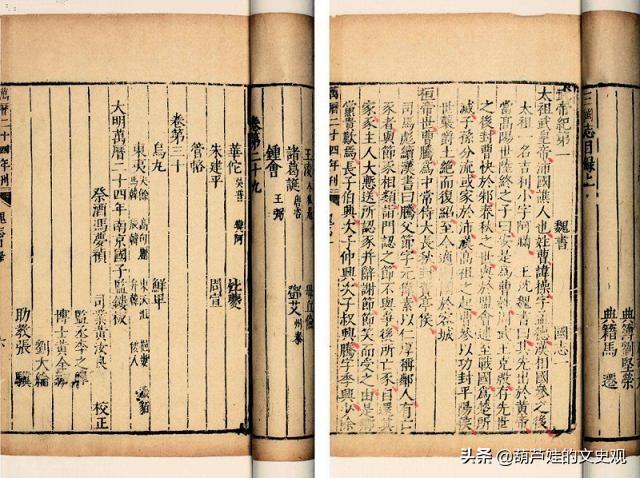 王淩
諸葛誕
鄧艾
鍾會
王弼
卷第二十九
華佗
杜夔
朱建平
周宣
管輅
卷第三十
烏九
鮮卑
東夷
夫餘
高句麗
馬韓
辰韓
大明萬曆二十四年南京國子監鏤板
祭酒馮夢禎
司業黃汝良
校正
博士黃全
劉大綸
助教張
萬曆二十四年刊
三國志目錄上
典籍馬
武帝紀第一
魏書
國志一
太祖武皇帝沛國譙人也姓曹諱操字孟德漢相國參之後
太祖一名吉利小字阿瞞
王沈魏書曰其先出於黃帝
當高陽世陸終之子曰安是爲曹姓周武王克殷存先世
之後封曹俠於邾春秋之世與於盟會逮至戰國爲楚所
滅子孫分流或家於沛漢高祖之起曹參以功封平陽侯
世襲爵土絕而復紹至今適嗣國於容城
桓帝世曹騰爲中常侍大長秋封費亭侯
司馬彪續漢書曰騰父節字元偉素以仁厚稱鄰人有亡
豕者與節豕相類詣門認之節不與爭後所亡豕自還其
家豕主人大慙送所認豕并辭謝節節笑而受之由是鄉
黨貴歎焉長子伯興次子仲興次子叔興騰字季興少除
萬曆二十四年刊
头条 @葫芦娃的文史观